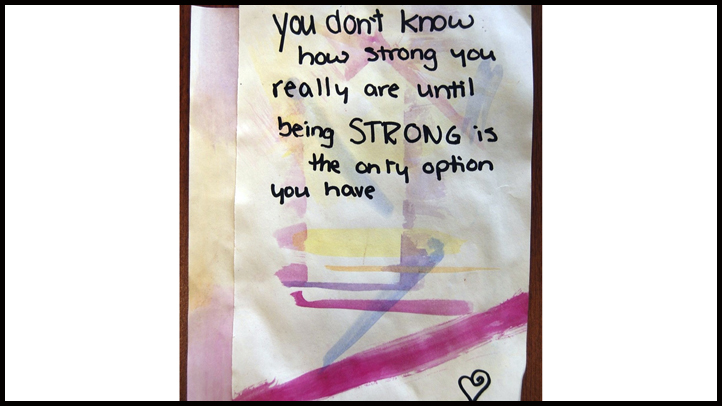 you don't know
how strong you
really are until
being STRONG is
the only option
you have